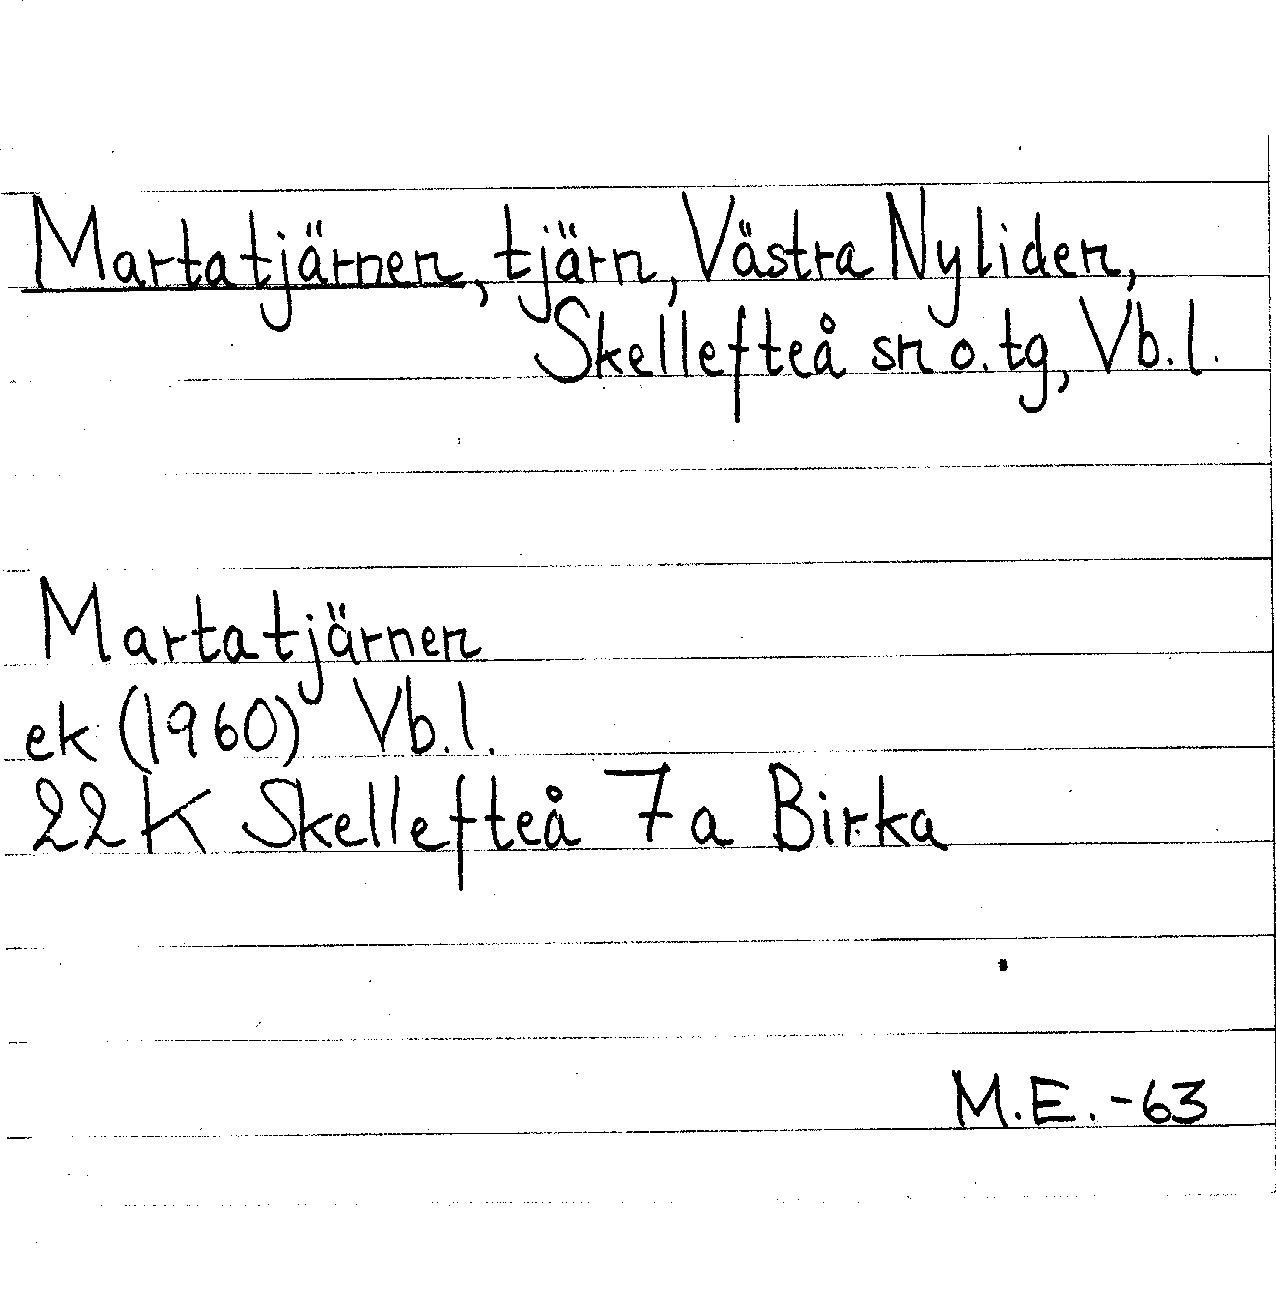 Martatjärnen, tjärn, Västra Nyliden,
Skellefteå sn o. tg, Vb. l.
Martatjärnen
ek (1960) Vb. l.
22 K Skellefteå 7 a Birka
M.E. -63